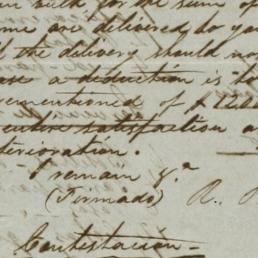 bulk for the sum of
me are delivered to you
if the delivery should no
a deduction is to
rementioned of £ 1200
entire satisfaction a
terioration.
I remain yr
(Firmado) R.
Contestación